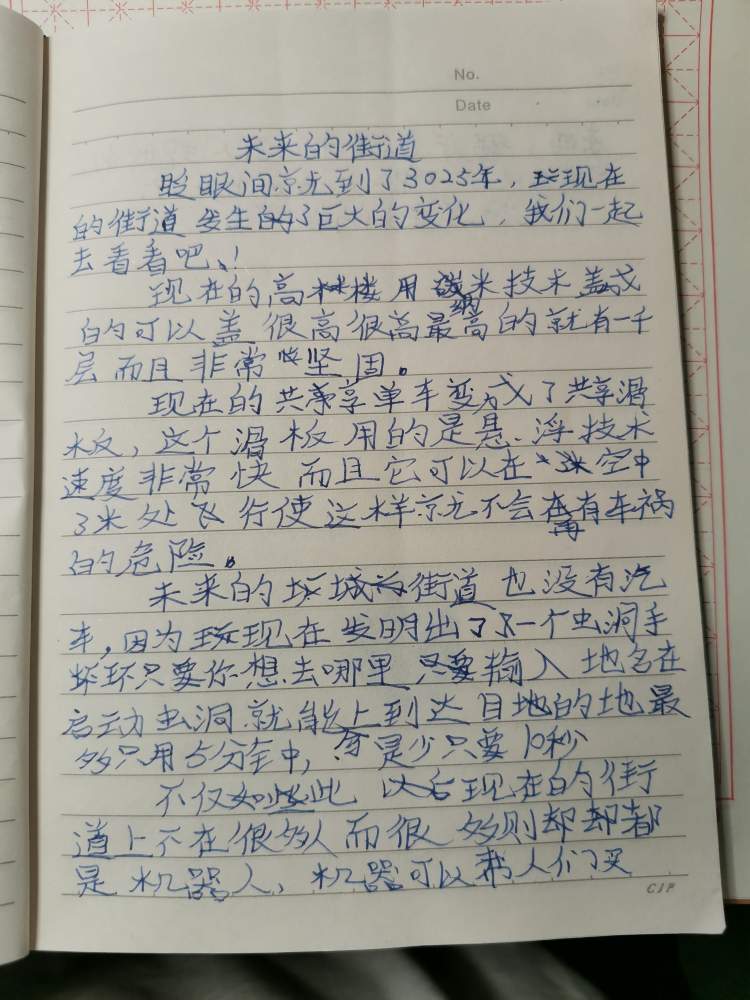 No.
Date
未来的街道
眨眼间就到了3025年，现在
的街道发生的了巨大的变化，我们一起
去看看吧！
现在的高楼用纳米技术盖成
的可以盖很高很高最高的就有一千
层而且非常坚固。
现在的共享单车变成了共享滑
板，这个滑板用的是悬浮技术
速度非常快而且它可以在空中
3米处飞行使这样就不会再有车祸
的危险。
未来的城街道也没有汽
车，因为现在发明出了一个虫洞手
环只要你想去哪里只要输入地名在
启动虫洞就能上到达目地的地最
多只用5分钟，是少只要10秒
不仅如此现在的街
道上不在很多人而很多则却都
是机器人，机器可以帮人们买
C1P